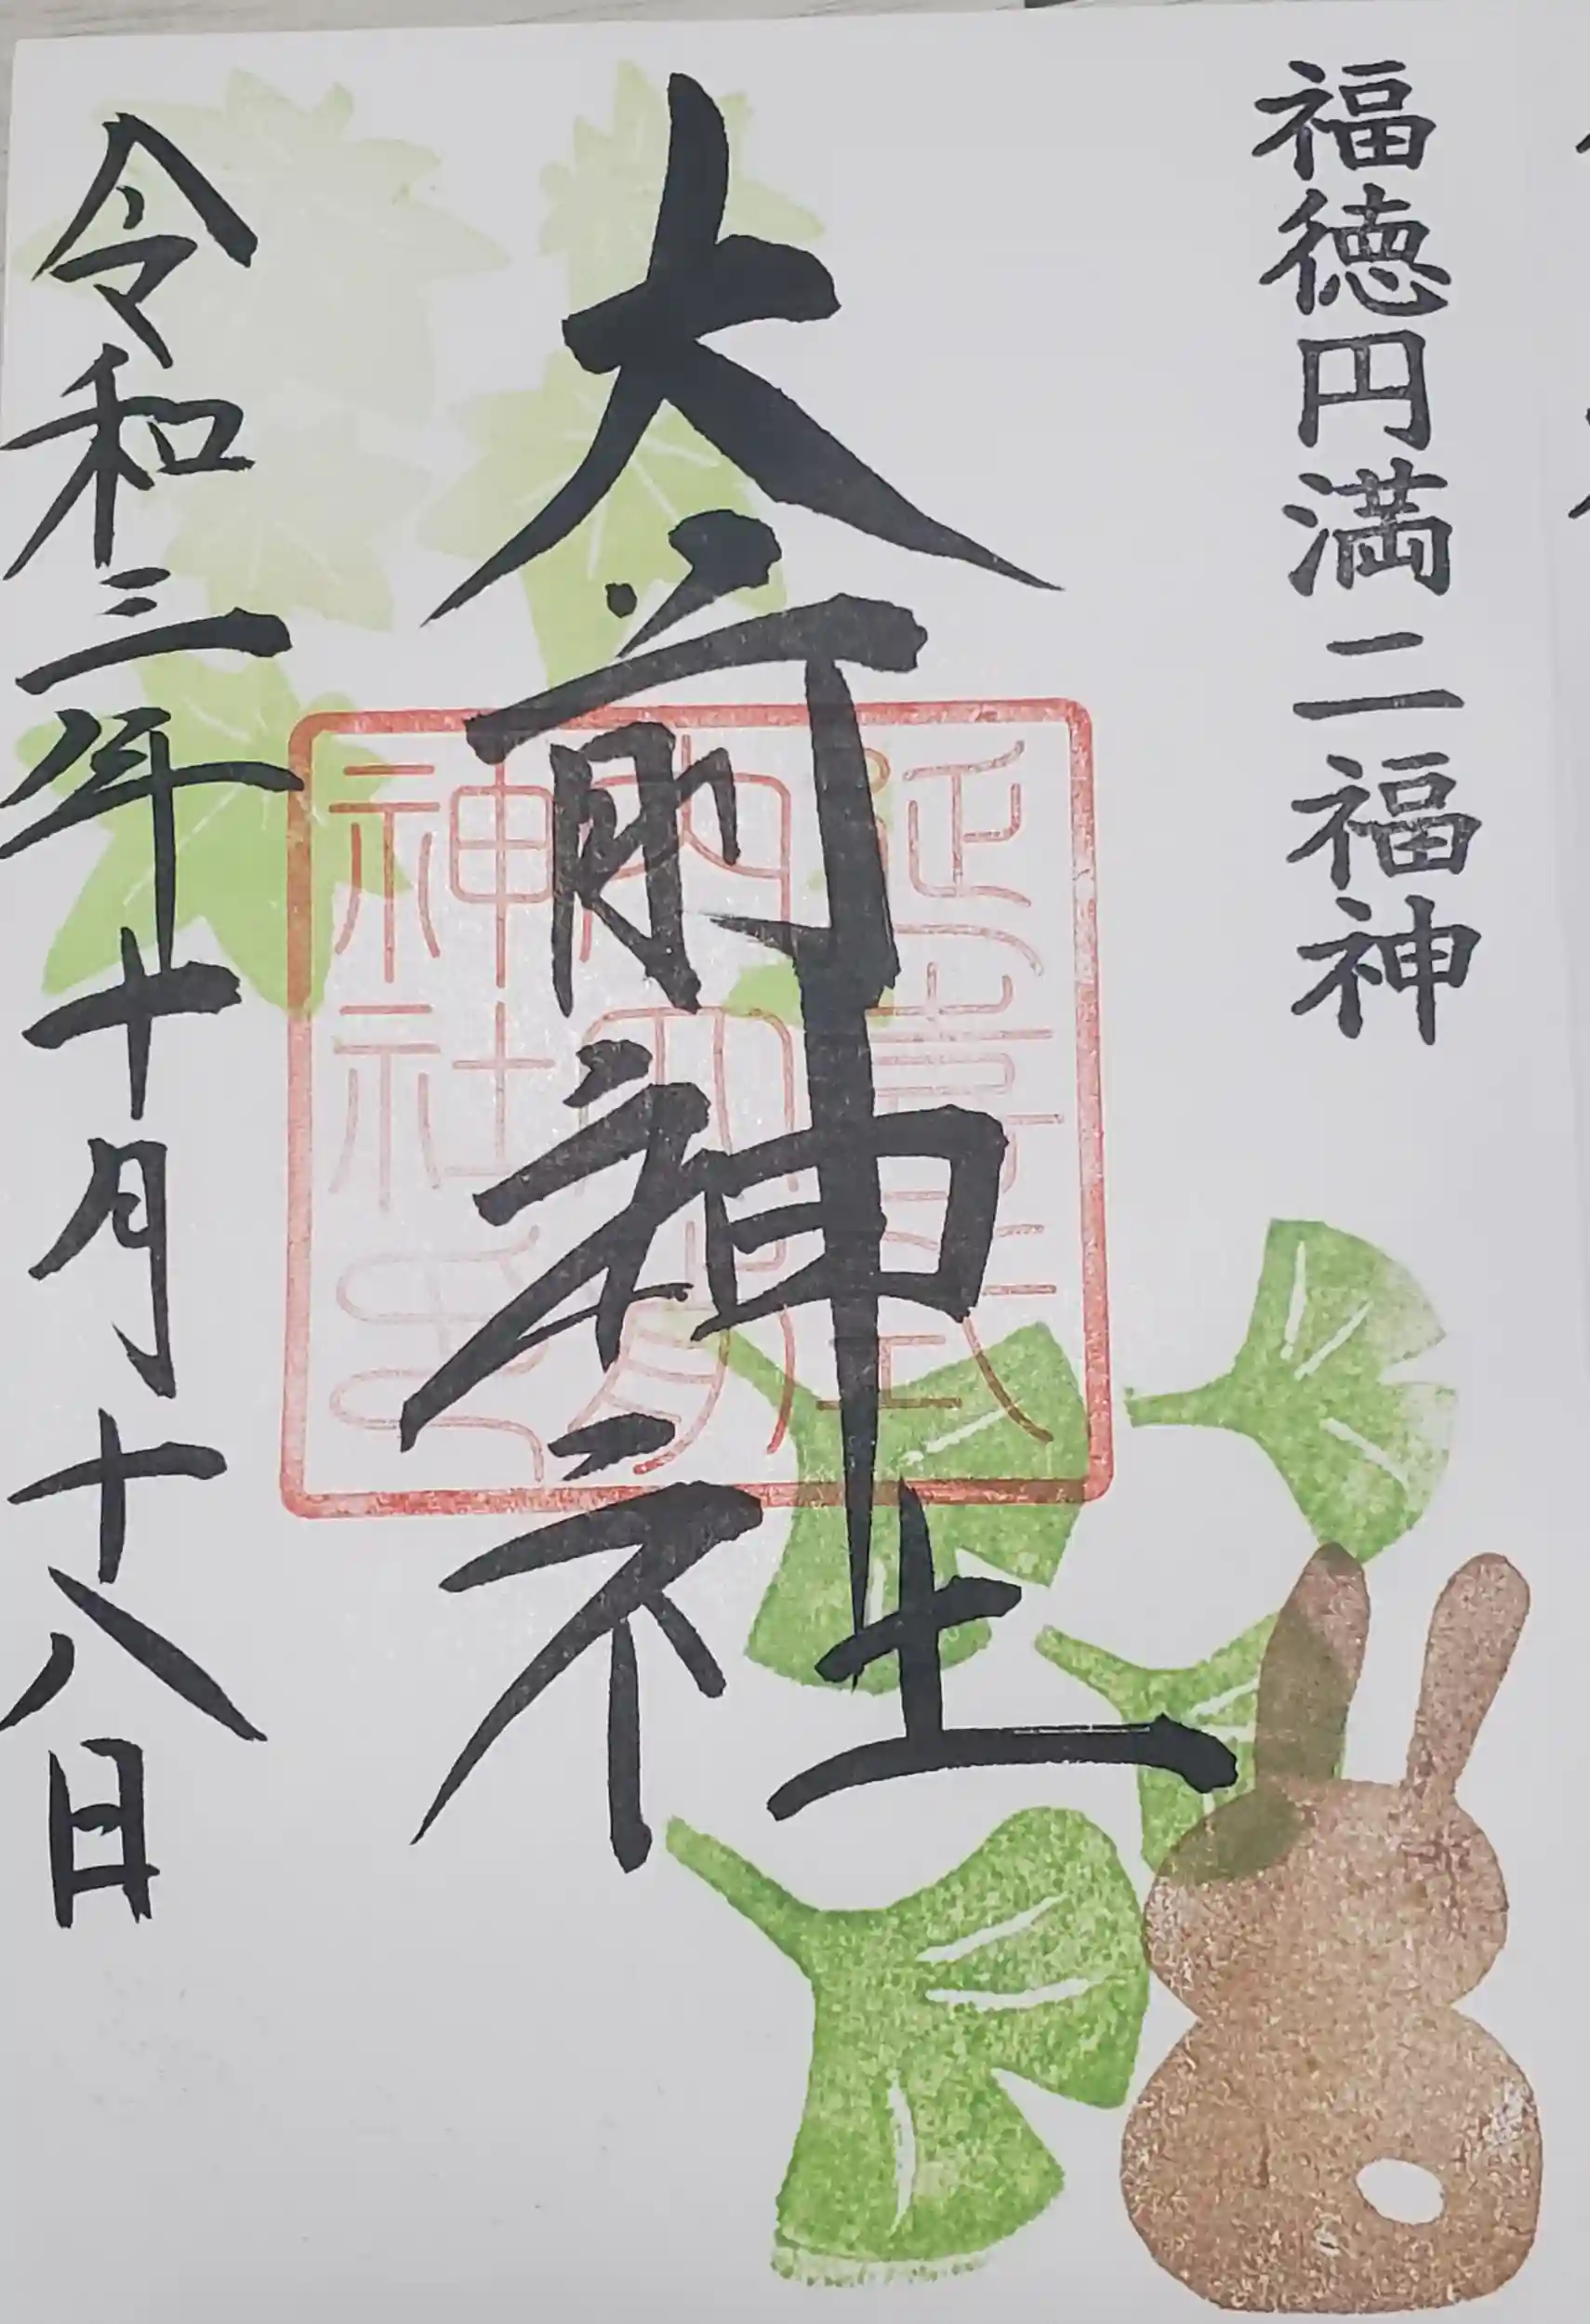 福徳円満二福神
大前神社
延喜式
内大前
神社印
令和三年十月十八日